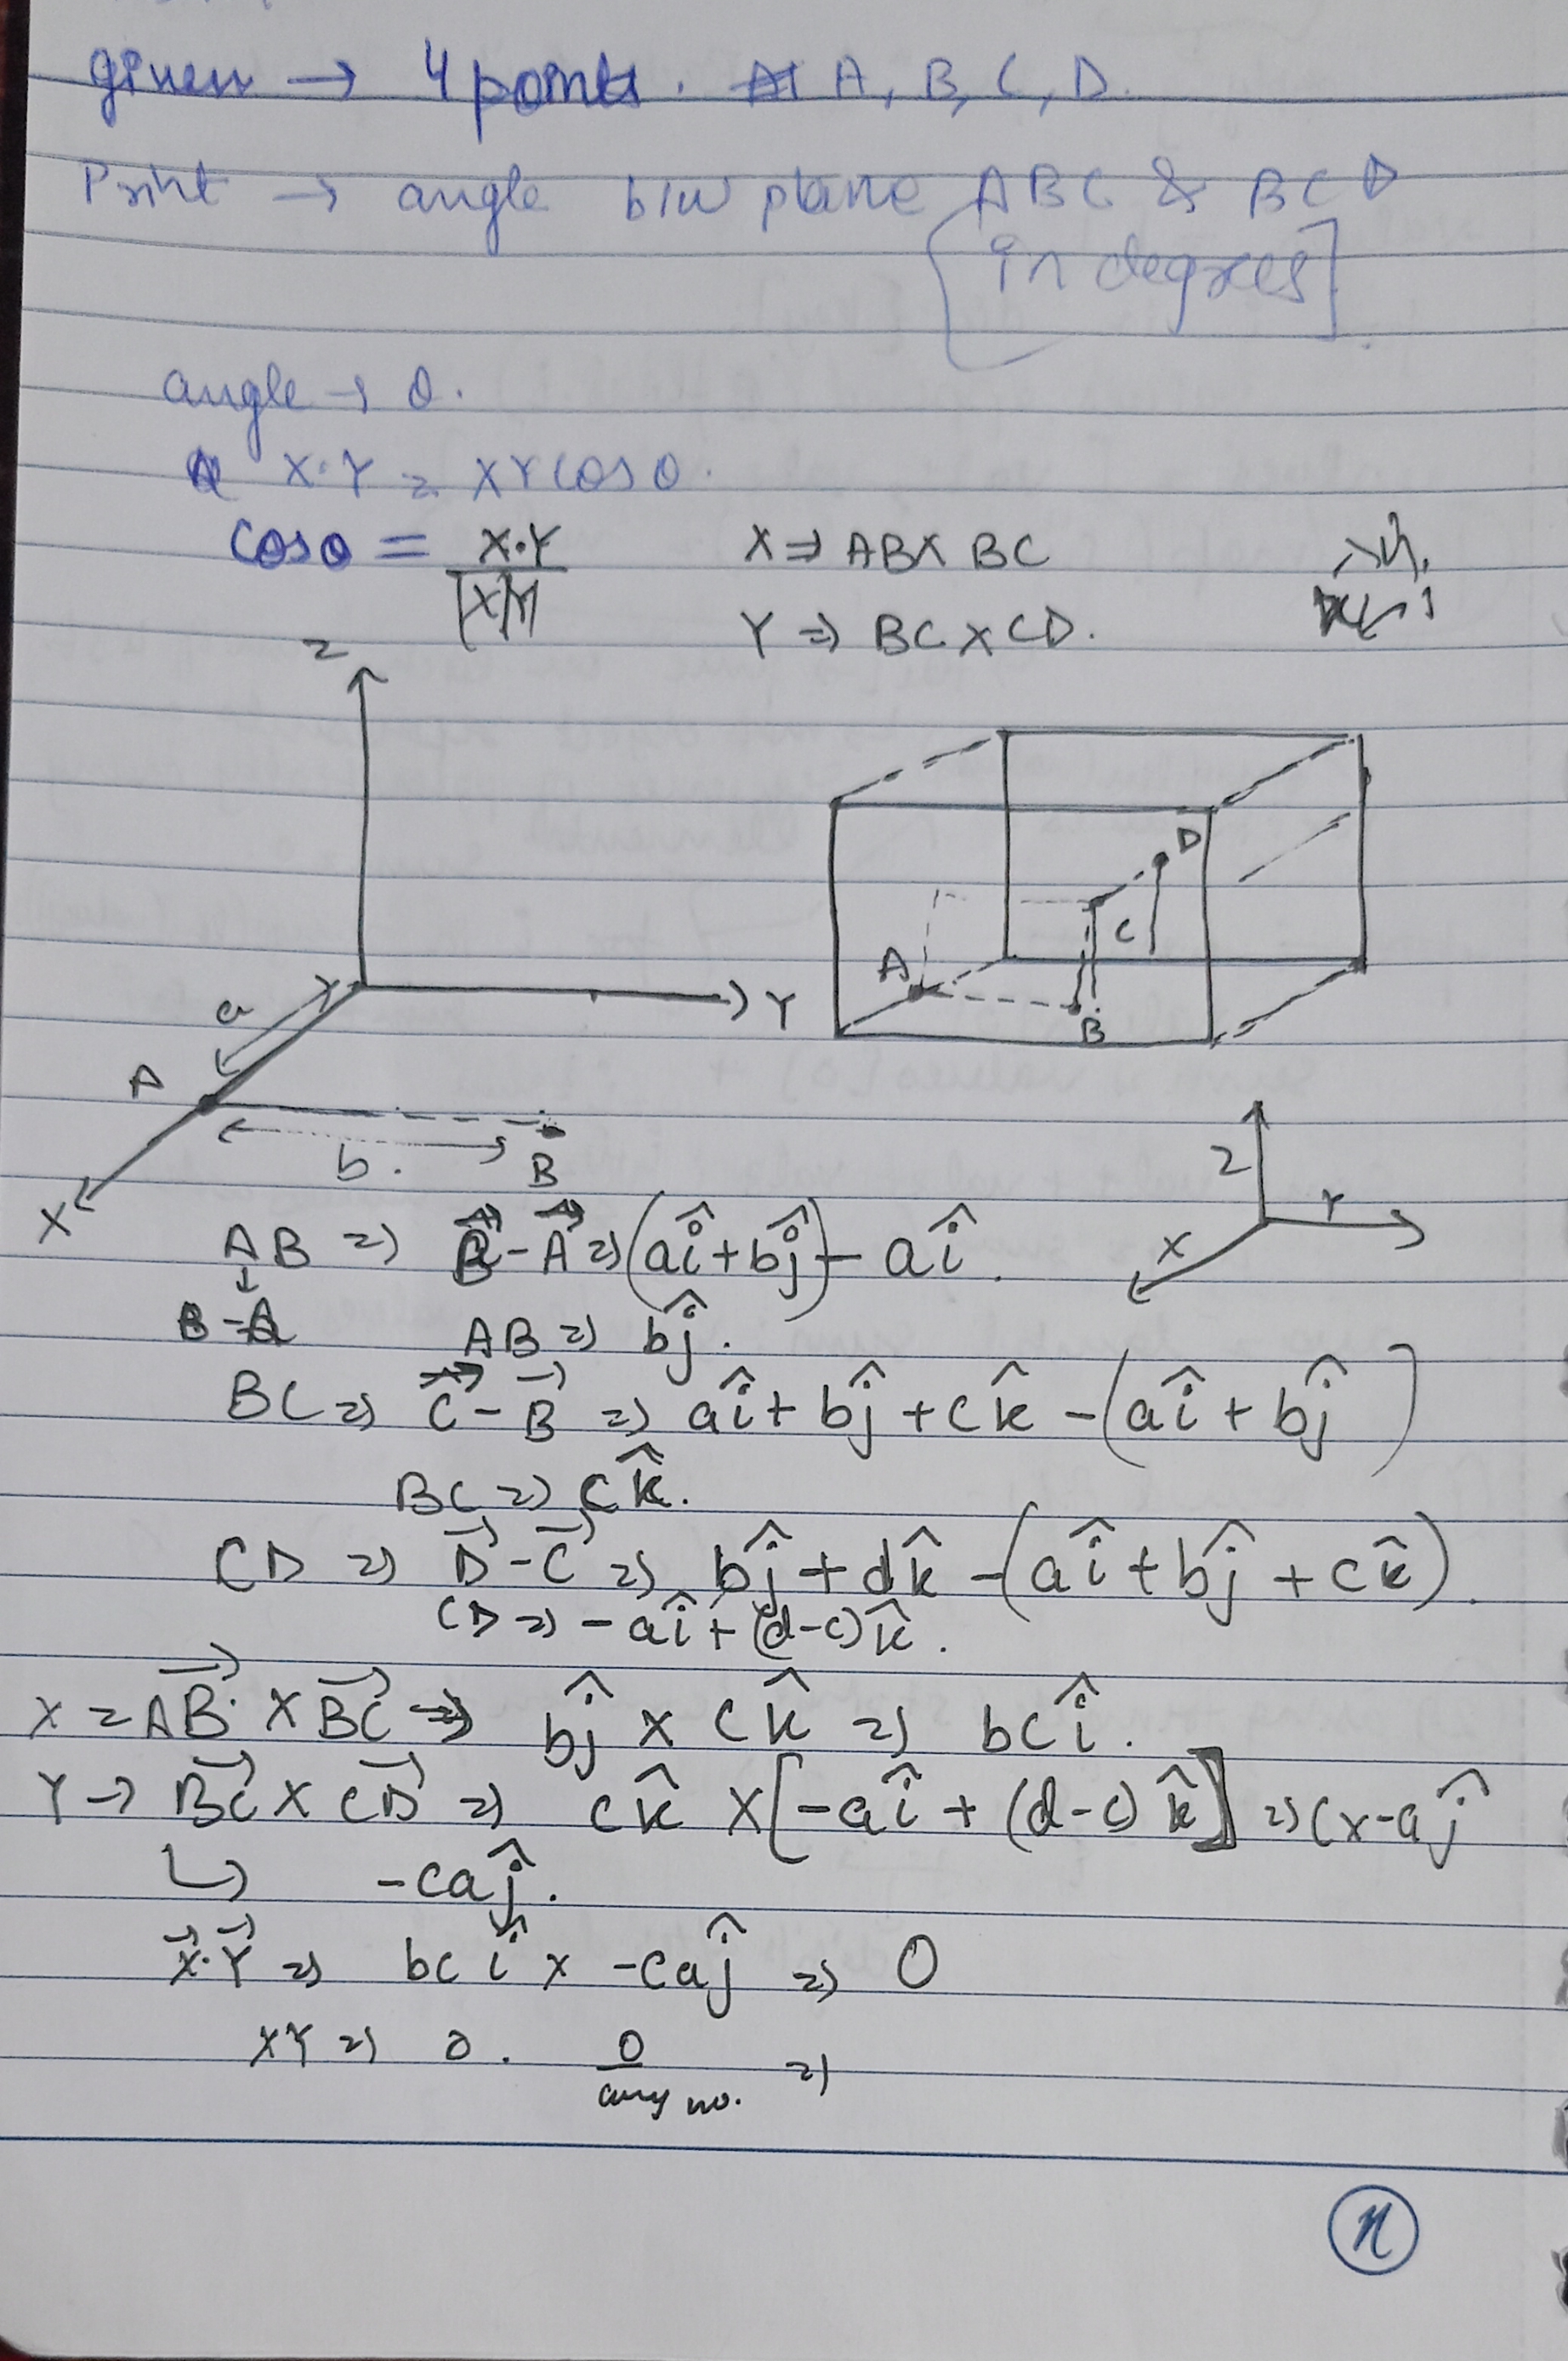 given → 4 points. A, B, C, D.
Print → angle b/w plane ABC & BCD
[in degrees]
angle → θ.
X·Y = XY cos θ.
cos θ = X·Y / |X||Y|
X ⇒ AB X BC
Y ⇒ BC X CD.
Z
Y
X
a
A
b.
B
A
B
C
D
Z
Y
X
AB ⇒ B⃗ - A⃗ ⇒ (aî + bĵ) - aî.
B - A
AB ⇒ bĵ.
BC ⇒ C⃗ - B⃗ ⇒ aî + bĵ + ck̂ - (aî + bĵ)
BC ⇒ ck̂.
CD ⇒ D⃗ - C⃗ ⇒ bĵ + dk̂ - (aî + bĵ + ck̂).
CD ⇒ - aî + (d-c)k̂.
X = AB⃗ X BC⃗ ⇒ bĵ x ck̂ ⇒ bcî.
Y → BC⃗ X CD⃗ ⇒ ck̂ X [-aî + (d-c)k̂] ⇒ cx-aĵ
↳ -caĵ.
X⃗·Y⃗ ⇒ bcî x -caĵ ⇒ 0
XY ⇒ 0. 0 / any no. ⇒
n